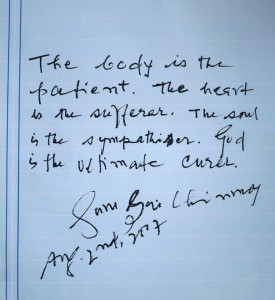 The body is the
patient. The heart
is the sufferer. The soul
is the sympathiser. God
is the ultimate curer.
Chinmoy
Aug. 2nd, 2007